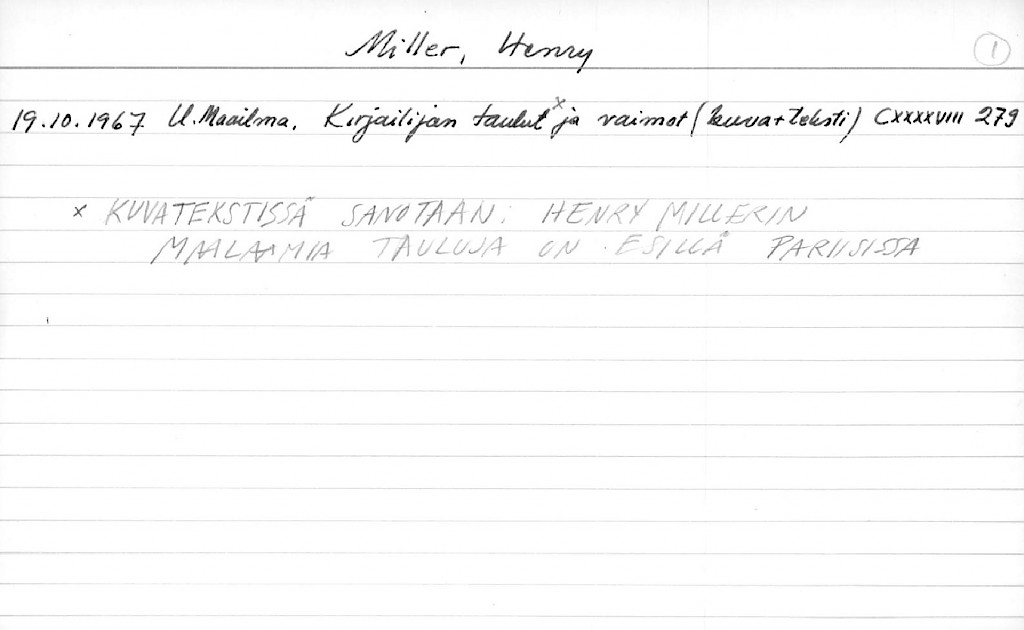 Miller, Henry 1
19.10.1967. U.Maailma. Kirjailijan taulut x ja vaimot (kuva+teksti) CXXXXVIII 279
x KUVATEKSTISSÄ SANOTAAN: HENRY MILLERIN
MAALAAMIA TAULUJA ON ESILLÄ PARIISISSA